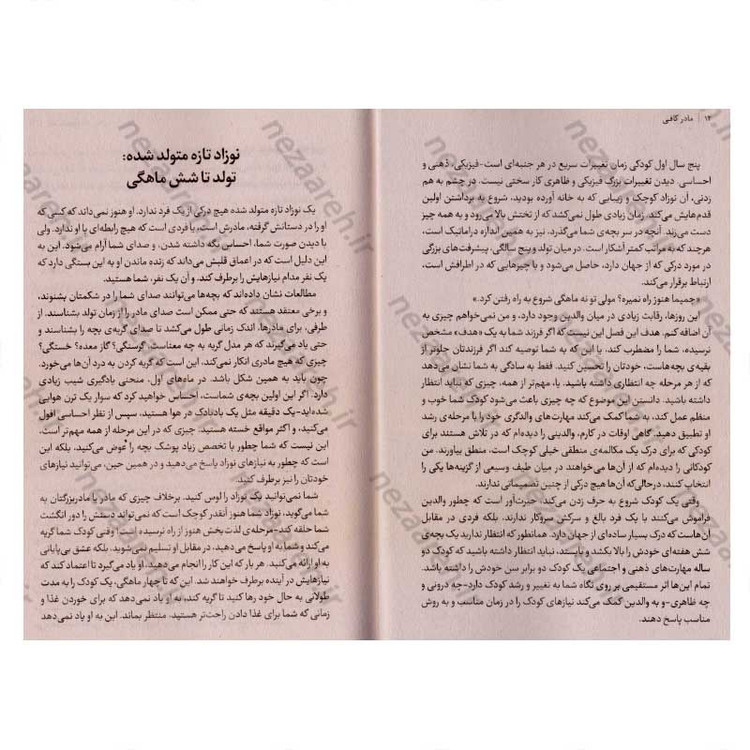 ۱۴ | مادر کافی
پنج سال اول کودکی زمان تغییرات سریع در هر جنبه‌ای است-فیزیکی، ذهنی و
احساسی. دیدن تغییرات بزرگ فیزیکی و ظاهری کار سختی نیست. در چشم به هم
زدنی، آن نوزاد کوچک و زیبایی که به خانه آورده بودید، شروع به برداشتن اولین
قدم‌هایش می‌کند. زمان زیادی طول نمی‌کشد که از تختش بالا می‌رود و به همه چیز
دست می‌زند. آنچه در سر بچه‌ی شما می‌گذرد، نیز به همین اندازه دراماتیک است،
هرچند که به مراتب کمتر آشکار است. در میان تولد و پنج سالگی، پیشرفت‌های بزرگی
در مورد درکی که از جهان دارد، حاصل می‌شود و با چیزهایی که در اطرافش است،
ارتباط برقرار می‌کند.
«جمیما هنوز راه نمیره؟ مولی تو نه ماهگی شروع به راه رفتن کرد.»
این روزها، رقابت زیادی در میان والدین وجود دارد، و من نمی‌خواهم چیزی به
آن اضافه کنم. هدف این فصل این نیست که اگر فرزند شما به یک «هدف» مشخص
نرسیده، شما را مضطرب کند، یا این که به شما توصیه کند اگر فرزندتان جلوتر از
بقیه‌ی بچه‌هاست، خودتان را تحسین کنید. فقط به سادگی به شما نشان می‌دهد
که از هر مرحله چه انتظاری داشته باشید. یا، مهم‌تر از همه، چیزی که نباید انتظار
داشته باشید. دانستن این موضوع که چه چیزی باعث می‌شود کودک شما خوب و
منظم عمل کند، به شما کمک می‌کند مهارت‌های والدگری خود را با مرحله‌ی رشد
او تطبیق دهید. گاهی اوقات در کارم، والدینی را دیده‌ام که در تلاش هستند برای
کودکی که برای درک یک مکالمه‌ی منطقی خیلی کوچک است، منطق بیاورند. من
کودکانی را دیده‌ام که از آن‌ها می‌خواهند در میان طیف وسیعی از گزینه‌ها یکی را
انتخاب کنند، درحالی‌که آن‌ها هیچ درکی از چنین تصمیماتی ندارند.
وقتی یک کودک شروع به حرف زدن می‌کند، حیرت‌آور است که چطور والدین
فراموش می‌کنند با یک فرد بالغ و سرکش سروکار ندارند، بلکه فردی در مقابل
آن‌هاست که درک بسیار ساده‌ای از جهان دارد. همانطور که انتظار ندارید یک بچه‌ی
شش هفته‌ای خودش را بالا بکشد و بایستد، نباید انتظار داشته باشید که کودک دو
ساله مهارت‌های ذهنی و اجتماعی یک کودک دو برابر سن خودش را داشته باشد.
تمام این‌ها اثر مستقیمی بر روی نگاه شما به تغییر و رشد کودک دارد-چه درونی و
چه ظاهری-و به والدین کمک می‌کند نیازهای کودک را در زمان مناسب و به روش
مناسب پاسخ دهند.
نوزاد تازه متولد شده:
تولد تا شش ماهگی
یک نوزاد تازه متولد شده هیچ درکی از یک فرد ندارد. او هنوز نمی‌داند که کسی که
او را در دستانش گرفته، مادرش است، یا فردی است که هیچ رابطه‌ای با او ندارد. ولی
با دیدن صورت شما، احساس نگه داشته شدن، و صدای شما آرام می‌شود. این به
این دلیل است که در اعماق قلبش می‌داند که زنده ماندن او به این بستگی دارد که
یک نفر مدام نیازهایش را برطرف کند. و آن یک نفر، شما هستید.
مطالعات نشان داده‌اند که بچه‌ها می‌توانند صدای شما را در شکمتان بشنوند،
و برخی معتقد هستند که حتی ممکن است صدای مادر را از زمان تولد بشناسند. از
طرفی، برای مادرها، اندک زمانی طول می‌کشد تا صدای گریه‌ی بچه را بشناسند و
حتی یاد می‌گیرند که هر مدل گریه به چه معناست. گرسنگی؟ گاز معده؟ خستگی؟
چیزی که هیچ مادری انکار نمی‌کند، این است که گریه کردن به درد آن‌ها می‌خورد.
چون باید به همین شکل باشد. در ماه‌های اول، منحنی یادگیری شیب زیادی
دارد. اگر این اولین بچه‌ی شماست، احساس خواهید کرد که سوار یک ترن هوایی
شده‌اید-یک دقیقه مثل یک بادبادک در هوا هستید، سپس از نظر احساسی افول
می‌کنید، و اکثر مواقع خسته هستید. چیزی که در این مرحله از همه مهم‌تر است،
این نیست که شما چطور با تخصص زیاد پوشک بچه را عوض می‌کنید، بلکه این
است که چطور به نیازهای نوزاد پاسخ می‌دهید و در همین حین، می‌توانید نیازهای
خودتان را نیز برطرف کنید.
شما نمی‌توانید یک نوزاد را لوس کنید. برخلاف چیزی که مادر یا مادربزرگتان به
شما می‌گوید، نوزاد شما هنوز آنقدر کوچک است که نمی‌تواند دستش را دور انگشت
شما حلقه کند-مرحله‌ی لذت‌بخش هنوز از راه نرسیده است! وقتی کودک شما گریه
می‌کند و شما به او پاسخ می‌دهید، در مقابل او تسلیم نمی‌شوید، بلکه عشق بی‌پایانی
به او ارائه می‌کنید. هر بار که این کار را انجام می‌دهید، او یاد می‌گیرد تا اعتماد کند که
نیازهایش در آینده برطرف خواهند شد. این که تا چهار ماهگی، یک کودک را به مدت
طولانی به حال خود رها کنید تا گریه کند، به او یاد نمی‌دهد که برای خوردن غذا و
زمانی که شما برای غذا دادن راحت‌تر هستید، منتظر بماند. این به او یاد نمی‌دهد
nezaareh.ir